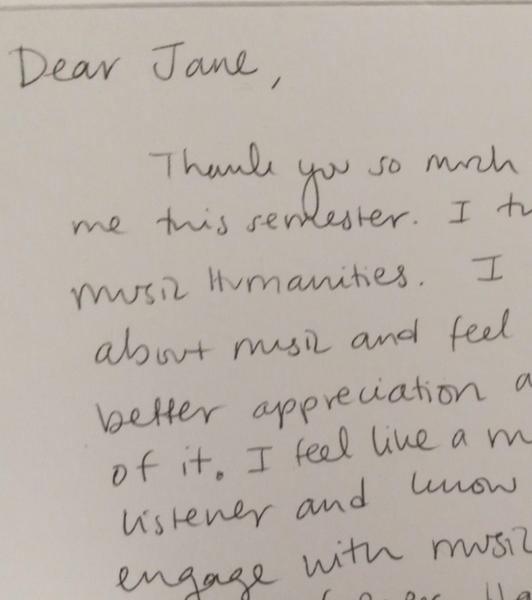 Dear Jane,
Thank you so much
me this semester. I
music Humanities. I
about music and feel
better appreciation
of it. I feel like a
listener and know
engage with music